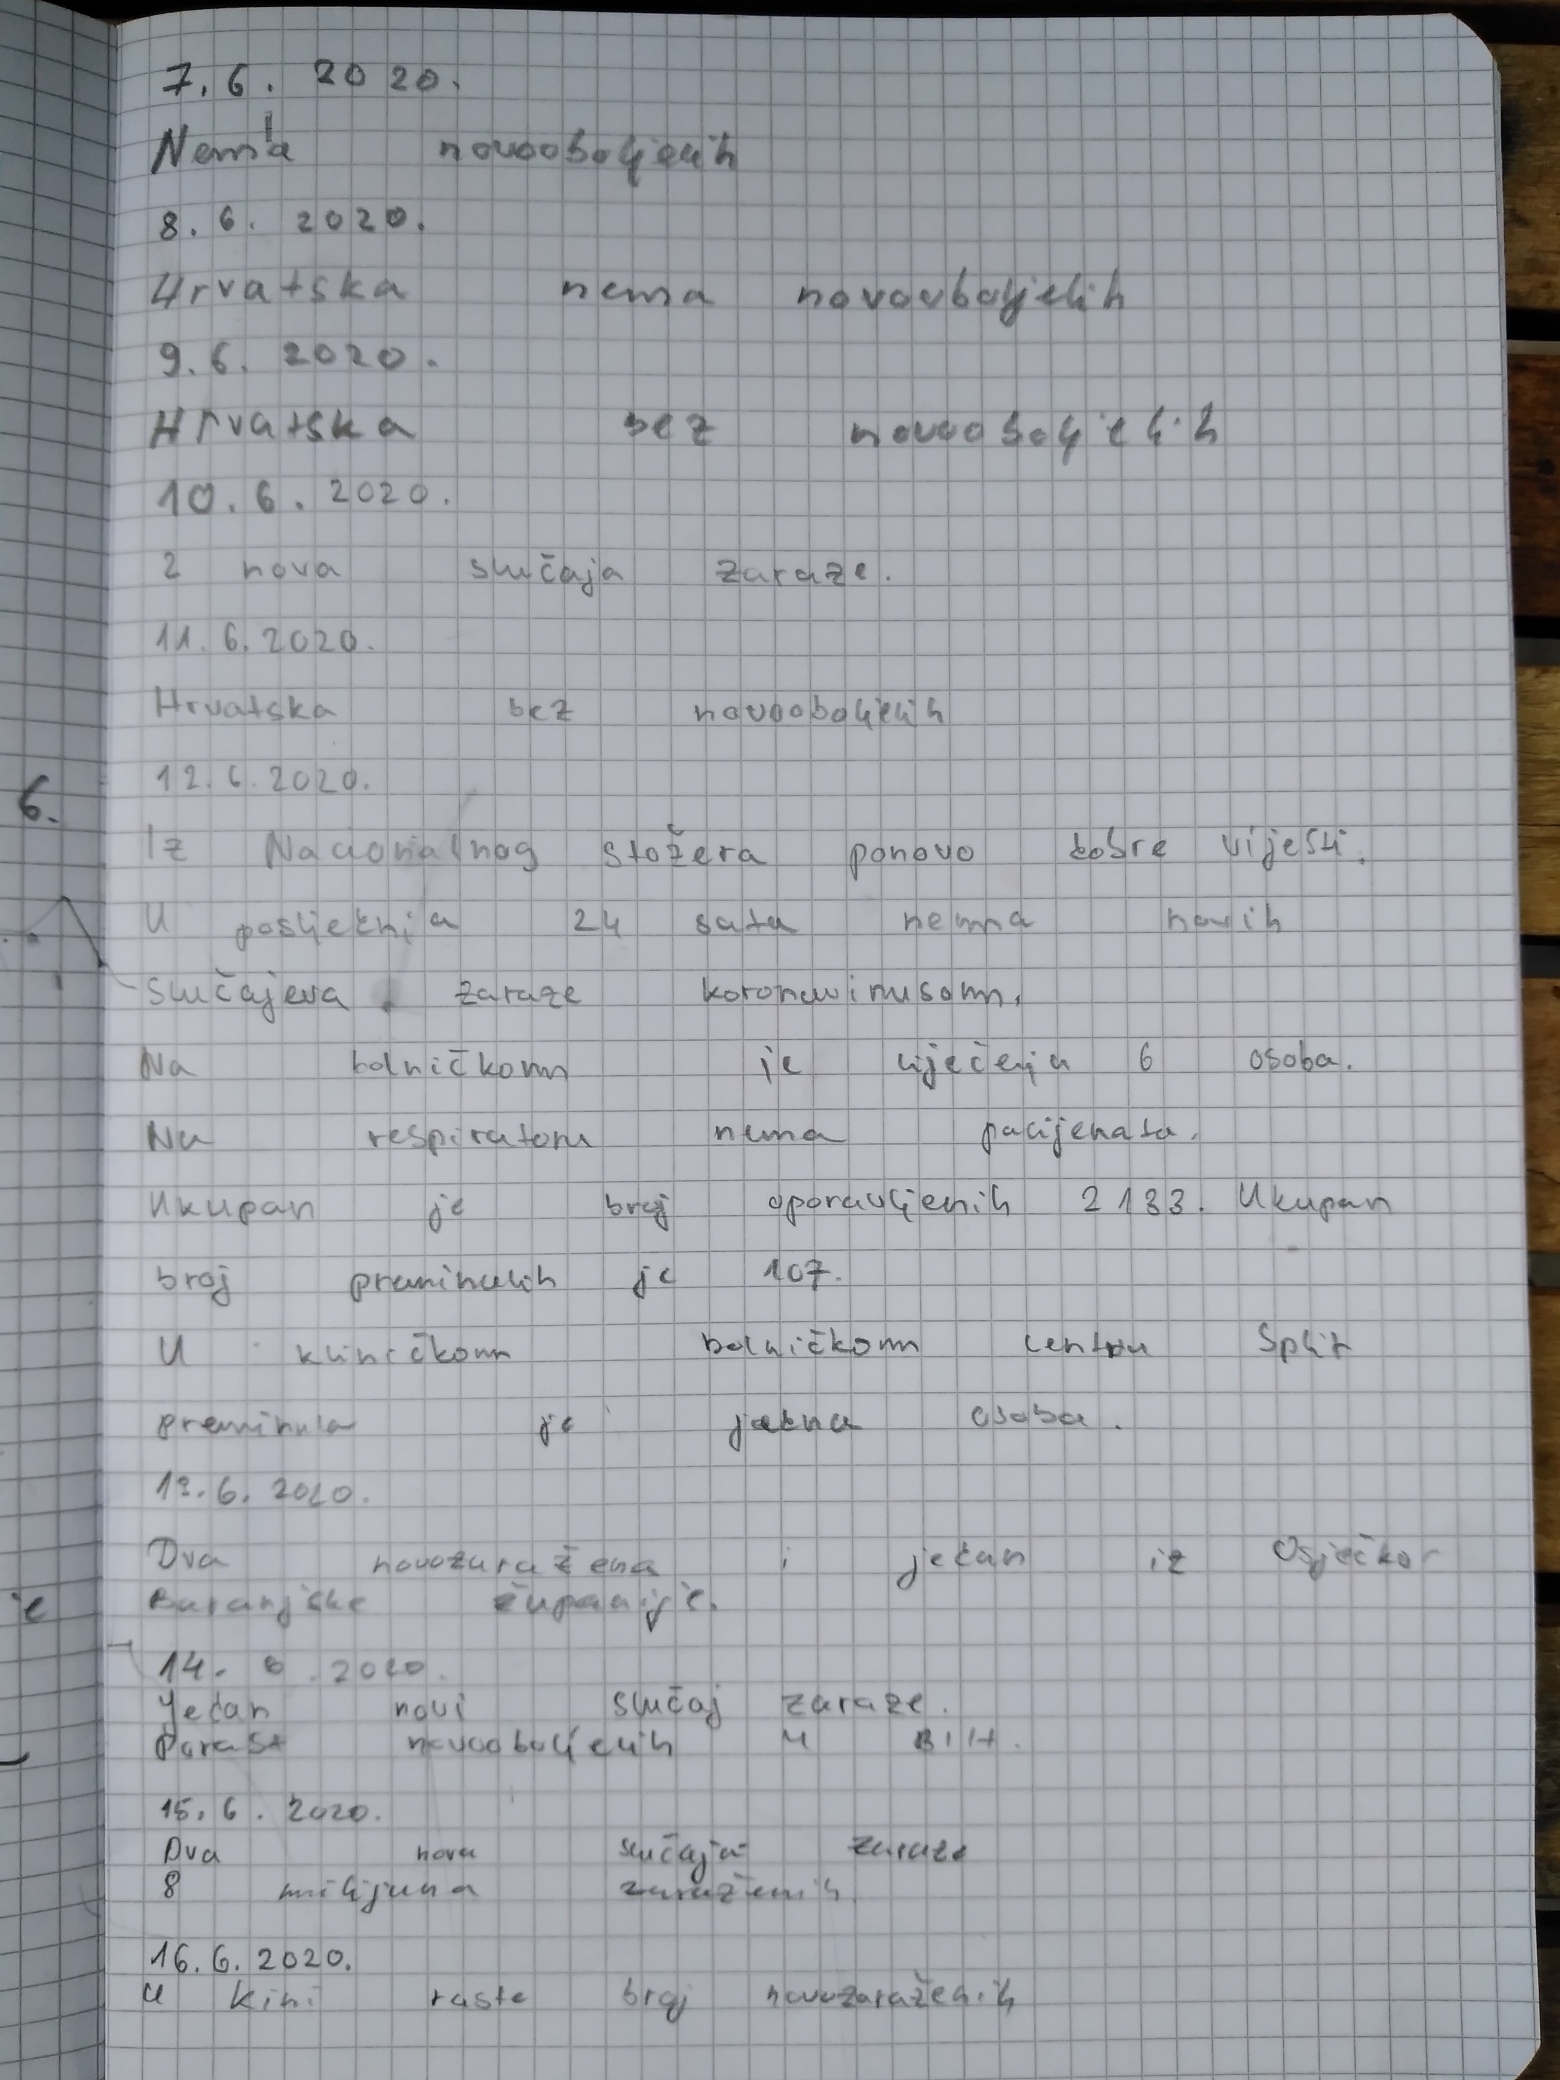 7.6. 2020.
Nema novooboljelih
8.6. 2020.
Hrvatska nema novooboljelih
9.6. 2020.
Hrvatska bez novooboljelih
10.6. 2020.
2 nova slučaja zaraze.
11.6.2020.
Hrvatska bez novooboljelih
12.6.2020.
6.
Iz Nacionalnog stožera ponovo dobre vijesti.
U posljednja 24 sata nema novih
slučajeva zaraze koronavirusom.
Na bolničkom je liječenju 6 osoba.
Na respiratoru nema pacijenata.
Ukupan je broj oporavljenih 2133. Ukupan
broj preminulih je 107.
U kliničkom bolničkom centru Split
preminula je jedna osoba.
13.6.2020.
Dva novozaražena i jedan iz Osječko-
je
Baranjske županije.
14. 6. 2020.
Jedan novi slučaj zaraze.
Porast novooboljelih u BIH.
15.6. 2020.
Dva nova slučaja zaraze
8 milijuna zaraženih
16.6.2020.
U Kini raste broj novozaraženih